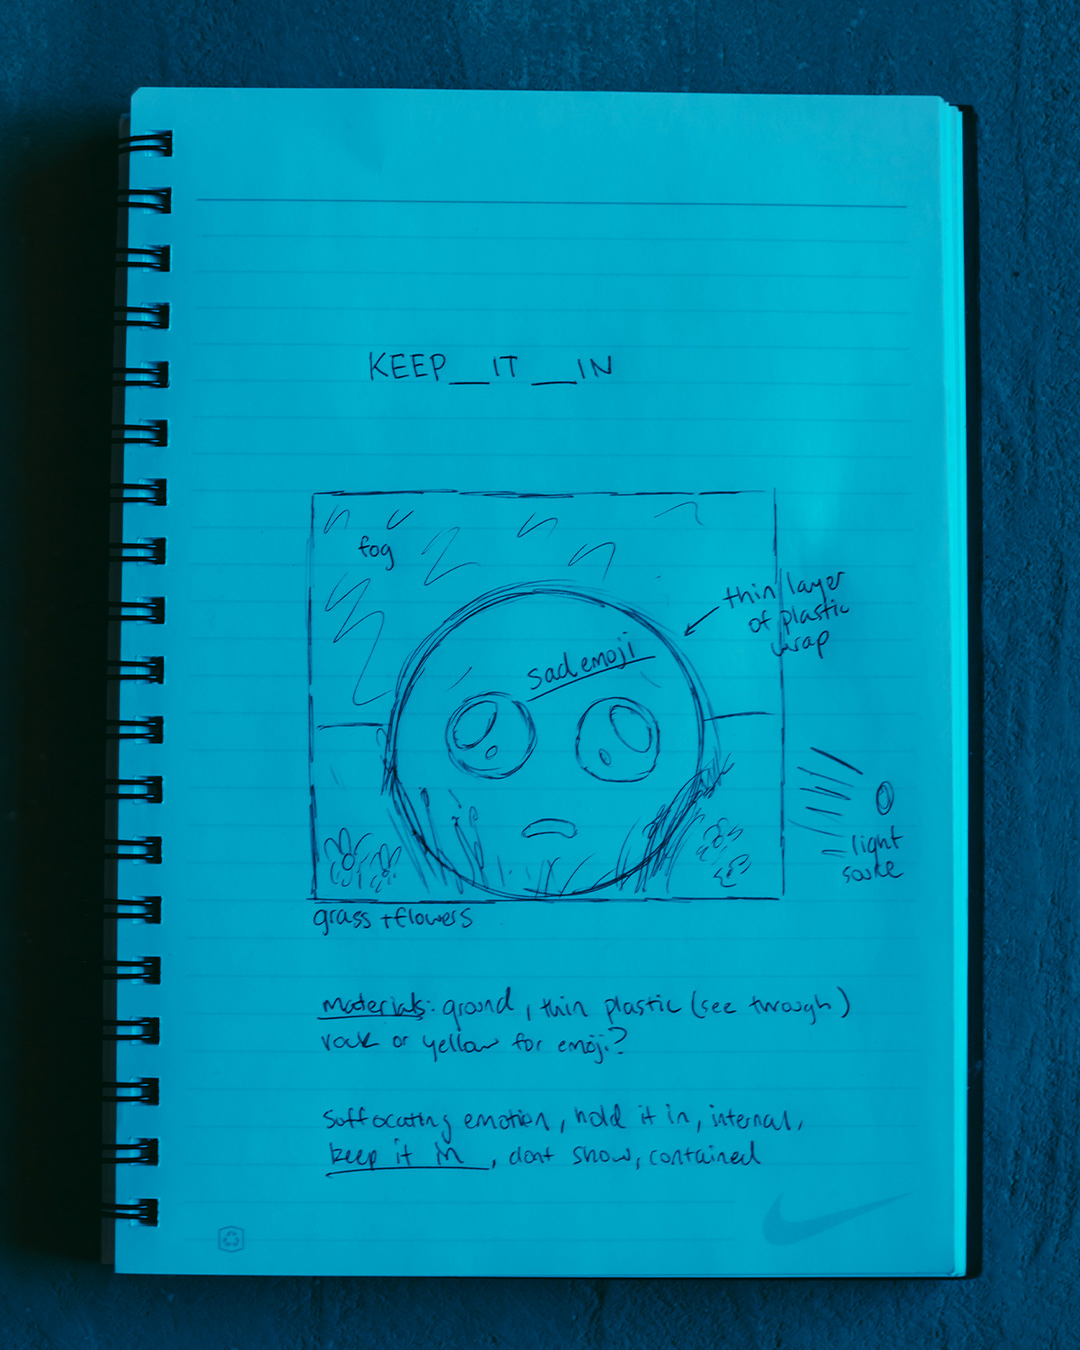 KEEP__IT__IN
fog
thin layer
of plastic
wrap
sad emoji
light
source
grass + flowers
materials: ground, thin plastic (see through)
rock or yellow for emoji?
suffocating emotion, hold it in, internal,
keep it in, dont show, contained